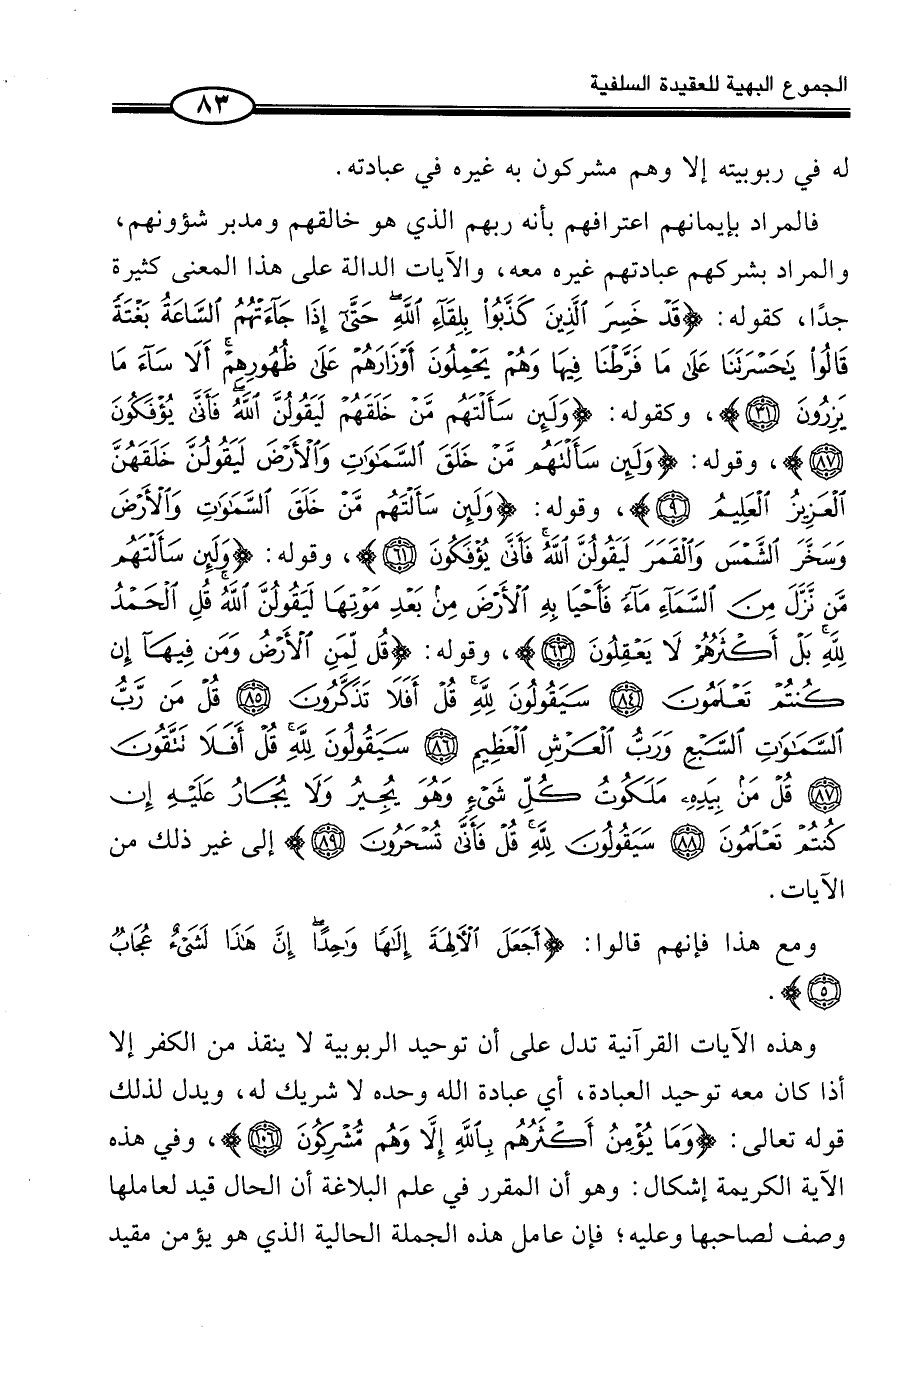 الجموع البهية للعقيدة السلفية
٨٣
له في ربوبيته إلا وهم مشركون به غيره في عبادته.
فالمراد بإيمانهم اعترافهم بأنه ربهم الذي هو خالقهم ومدبر شؤونهم،
والمراد بشركهم عبادتهم غيره معه، والآيات الدالة على هذا المعنى كثيرة
جدًا، كقوله: ﴿قَدْ خَسِرَ ٱلَّذِينَ كَذَّبُوا۟ بِلِقَآءِ ٱللَّهِ ۖ حَتَّىٰٓ إِذَا جَآءَتْهُمُ ٱلسَّاعَةُ بَغْتَةً
قَالُوا۟ يَٰحَسْرَتَنَا عَلَىٰ مَا فَرَّطْنَا فِيهَا وَهُمْ يَحْمِلُونَ أَوْزَارَهُمْ عَلَىٰ ظُهُورِهِمْ ۚ أَلَا سَآءَ مَا
يَزِرُونَ ٣١﴾، وكقوله: ﴿وَلَئِن سَأَلْتَهُم مَّنْ خَلَقَهُمْ لَيَقُولُنَّ ٱللَّهُ ۖ فَأَنَّىٰ يُؤْفَكُونَ
٨٧﴾، وقوله: ﴿وَلَئِن سَأَلْتَهُم مَّنْ خَلَقَ ٱلسَّمَٰوَٰتِ وَٱلْأَرْضَ لَيَقُولُنَّ خَلَقَهُنَّ
ٱلْعَزِيزُ ٱلْعَلِيمُ ٩﴾، وقوله: ﴿وَلَئِن سَأَلْتَهُم مَّنْ خَلَقَ ٱلسَّمَٰوَٰتِ وَٱلْأَرْضَ
وَسَخَّرَ ٱلشَّمْسَ وَٱلْقَمَرَ لَيَقُولُنَّ ٱللَّهُ ۖ فَأَنَّىٰ يُؤْفَكُونَ ٦١﴾، وقوله: ﴿وَلَئِن سَأَلْتَهُم
مَّن نَّزَّلَ مِنَ ٱلسَّمَآءِ مَآءً فَأَحْيَا بِهِ ٱلْأَرْضَ مِنۢ بَعْدِ مَوْتِهَا لَيَقُولُنَّ ٱللَّهُ ۚ قُلِ ٱلْحَمْدُ
لِلَّهِ ۚ بَلْ أَكْثَرُهُمْ لَا يَعْقِلُونَ ٦٣﴾، وقوله: ﴿قُل لِّمَنِ ٱلْأَرْضُ وَمَن فِيهَآ إِن
كُنتُمْ تَعْلَمُونَ ٨٤ سَيَقُولُونَ لِلَّهِ ۚ قُلْ أَفَلَا تَذَكَّرُونَ ٨٥ قُلْ مَن رَّبُّ
ٱلسَّمَٰوَٰتِ ٱلسَّبْعِ وَرَبُّ ٱلْعَرْشِ ٱلْعَظِيمِ ٨٦ سَيَقُولُونَ لِلَّهِ ۚ قُلْ أَفَلَا تَتَّقُونَ
٨٧ قُلْ مَنۢ بِيَدِهِۦ مَلَكُوتُ كُلِّ شَىْءٍ وَهُوَ يُجِيرُ وَلَا يُجَارُ عَلَيْهِ إِن
كُنتُمْ تَعْلَمُونَ ٨٨ سَيَقُولُونَ لِلَّهِ ۚ قُلْ فَأَنَّىٰ تُسْحَرُونَ ٨٩﴾ إلى غير ذلك من
الآيات.
ومع هذا فإنهم قالوا: ﴿أَجَعَلَ ٱلْءَالِهَةَ إِلَٰهًا وَٰحِدًا ۖ إِنَّ هَٰذَا لَشَىْءٌ عُجَابٌ
٥﴾.
وهذه الآيات القرآنية تدل على أن توحيد الربوبية لا ينقذ من الكفر إلا
أذا كان معه توحيد العبادة، أي عبادة الله وحده لا شريك له، ويدل لذلك
قوله تعالى: ﴿وَمَا يُؤْمِنُ أَكْثَرُهُم بِٱللَّهِ إِلَّا وَهُم مُّشْرِكُونَ ١٠٦﴾، وفي هذه
الآية الكريمة إشكال: وهو أن المقرر في علم البلاغة أن الحال قيد لعاملها
وصف لصاحبها وعليه؛ فإن عامل هذه الجملة الحالية الذي هو يؤمن مقيد